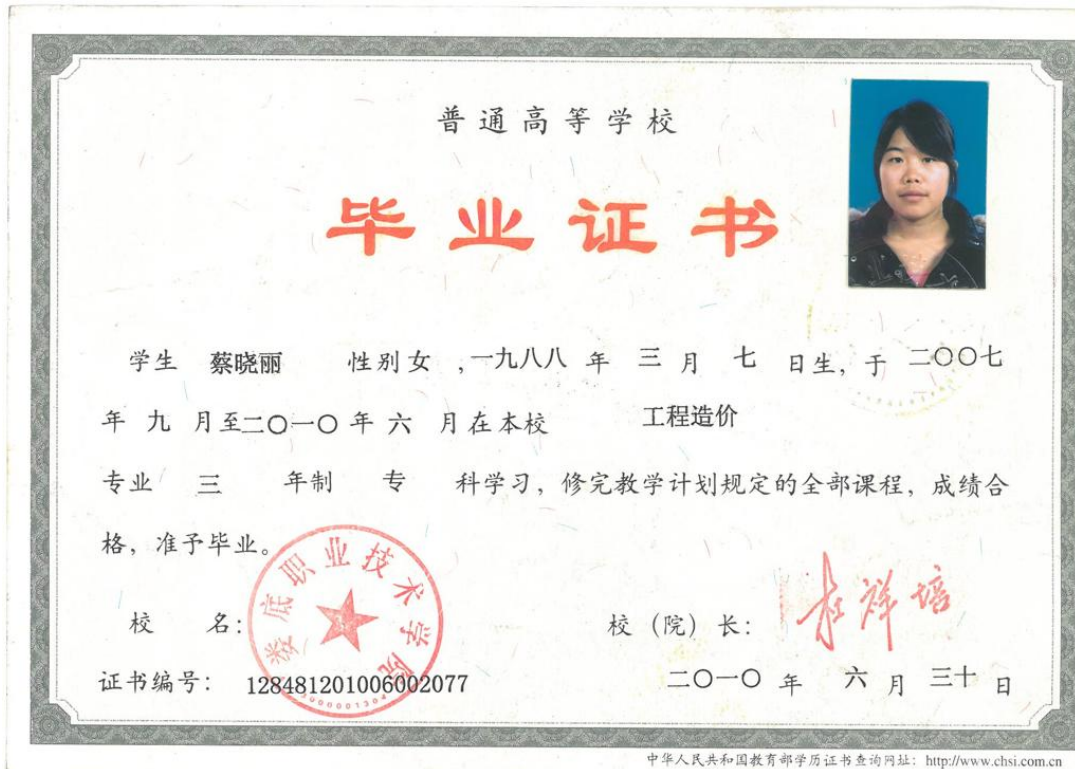 普通高等学校
毕业证书
学生 蔡晓丽 性别女，一九八八年 三月 七 日生，于 二〇〇七
年 九 月至二〇一〇年 六 月在本校 工程造价
专业 三 年制 专 科学习，修完教学计划规定的全部课程，成绩合
格，准予毕业。
娄底职业技术学院
校 名： 校（院）长： 杜祥培
证书编号： 128481201006002077 二〇一〇年 六 月 三十 日
中华人民共和国教育部学历证书查询网址：http://www.chsi.com.cn